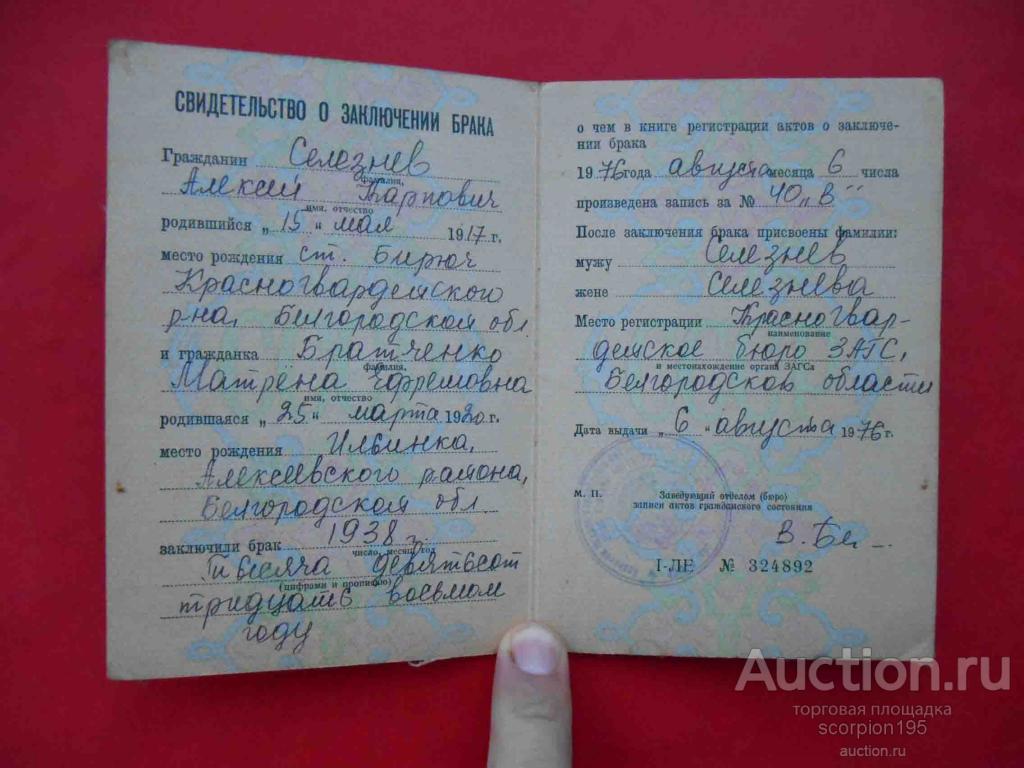 СВИДЕТЕЛЬСТВО О ЗАКЛЮЧЕНИИ БРАКА
Гражданин Селезнев
фамилия,
Алексей Карпович
имя, отчество
родившийся „ 15 “ мая 1917 г.
место рождения ст. Бирюч
Красногвардейского
р-на, Белгородской обл
и гражданка Братченко
фамилия,
Матрёна Ефремовна
имя, отчество
родившаяся „ 25 “ марта 1920 г.
место рождения Ильинка,
Алексеевского района,
Белгородской обл.
заключили брак 1938 г.
число, месяц, год
Тысяча девятьсот
(цифрами и прописью)
тридцать восьмом
году
о чем в книге регистрации актов о заключе-
нии брака
1976 года августа месяца 6 числа
произведена запись за № 40 „В“
После заключения брака присвоены фамилии:
мужу Селезнев
жене Селезнева
Место регистрации Красногвар-
наименование
дейское бюро ЗАГС,
и местонахождение органа ЗАГСа
Белгородской области
Дата выдачи „ 6 “ августа 1976 г.
М. П. Заведующий отделом (бюро)
записи актов гражданского состояния
I-ЛЕ № 324892
Auction.ru
торговая площадка
scorpion195
auction.ru